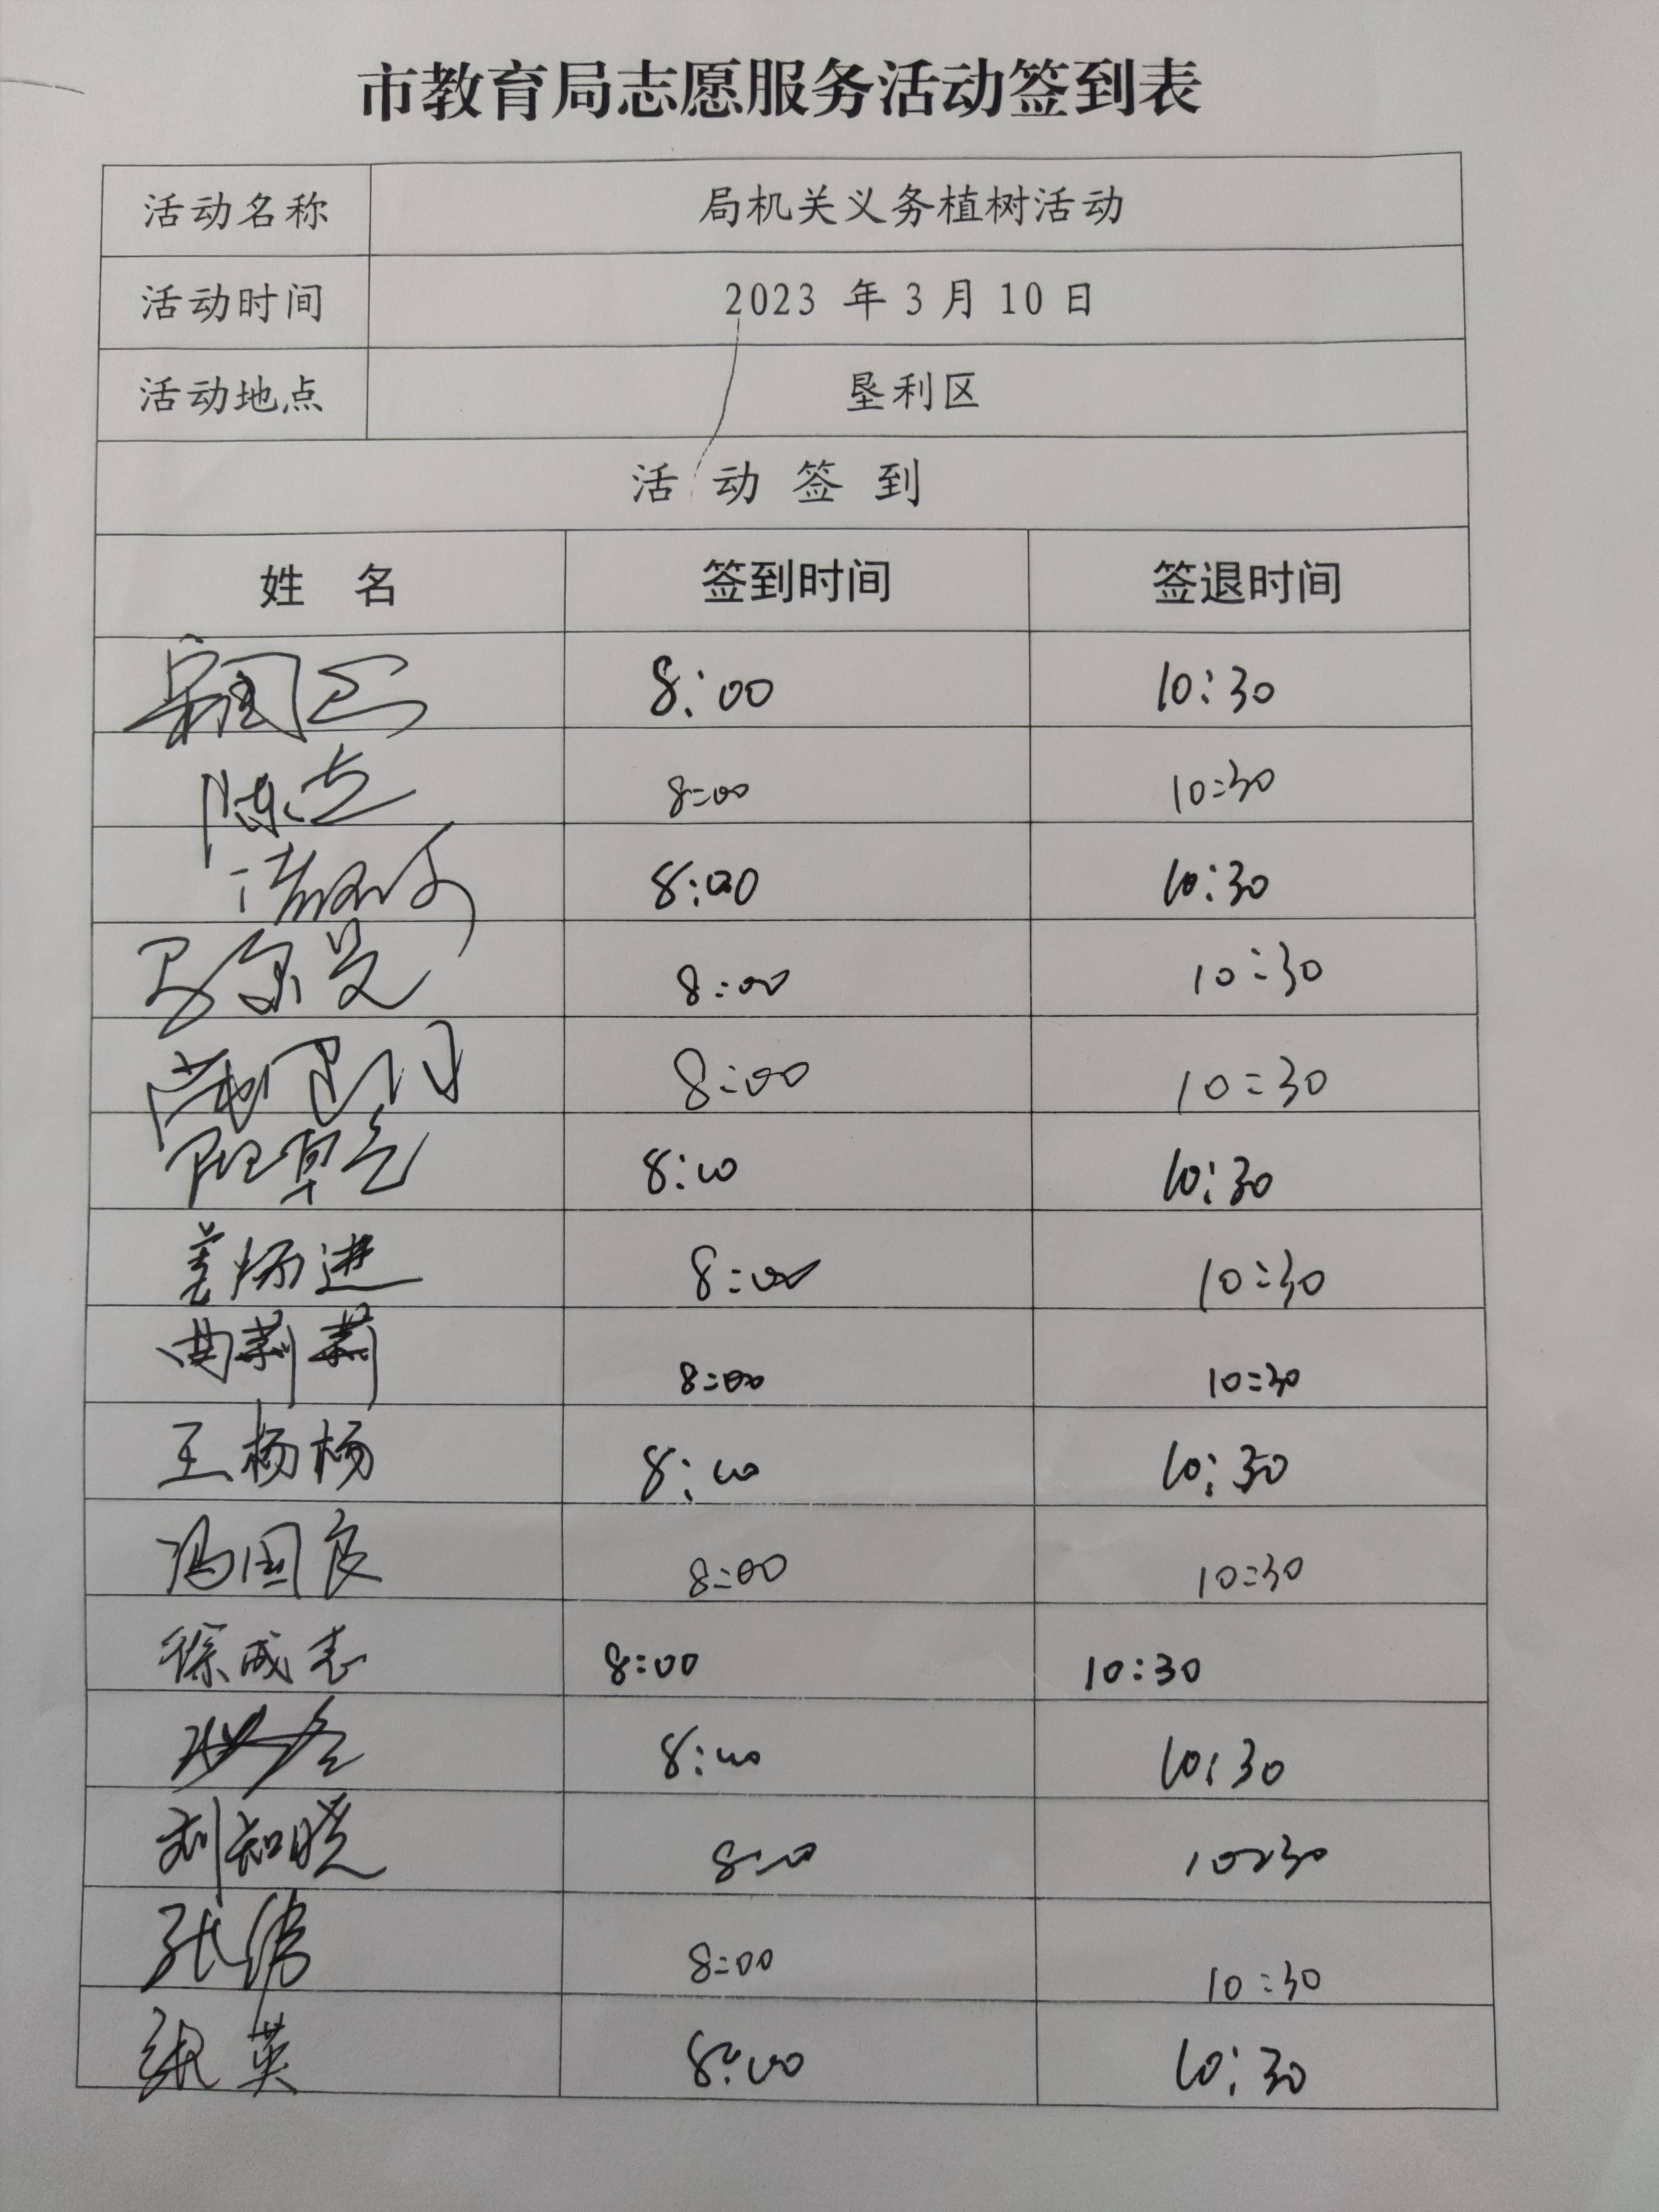 市教育局志愿服务活动签到表
活动名称 局机关义务植树活动
活动时间 2023 年 3 月 10 日
活动地点 垦利区
活 动 签 到
姓 名 签到时间 签退时间
8:00 10:30
陈立 8:00 10:30
8:00 10:30
8:00 10:30
8:00 10:30
8:00 10:30
姜炳进 8:00 10:30
曲莉莉 8:00 10:30
王杨杨 8:00 10:30
冯国良 8:00 10:30
徐成志 8:00 10:30
8:00 10:30
刘知晓 8:00 10:30
张伟 8:00 10:30
张英 8:00 10:30